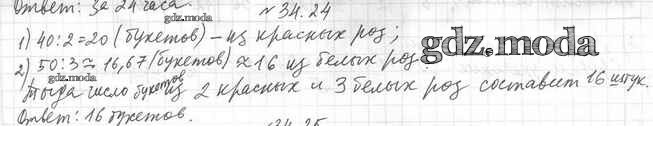 Ответ: За 24 часа.
gdz.moda
№34.24
1) 40:2=20 (букетов) – из красных роз;
2) 50:3≈16,67 (букетов) ≈16 из белых роз
gdz.moda
gdz.moda
Тогда число букетов из 2 красных и 3 белых роз составит 16 штук.
Ответ: 16 букетов.
34.25